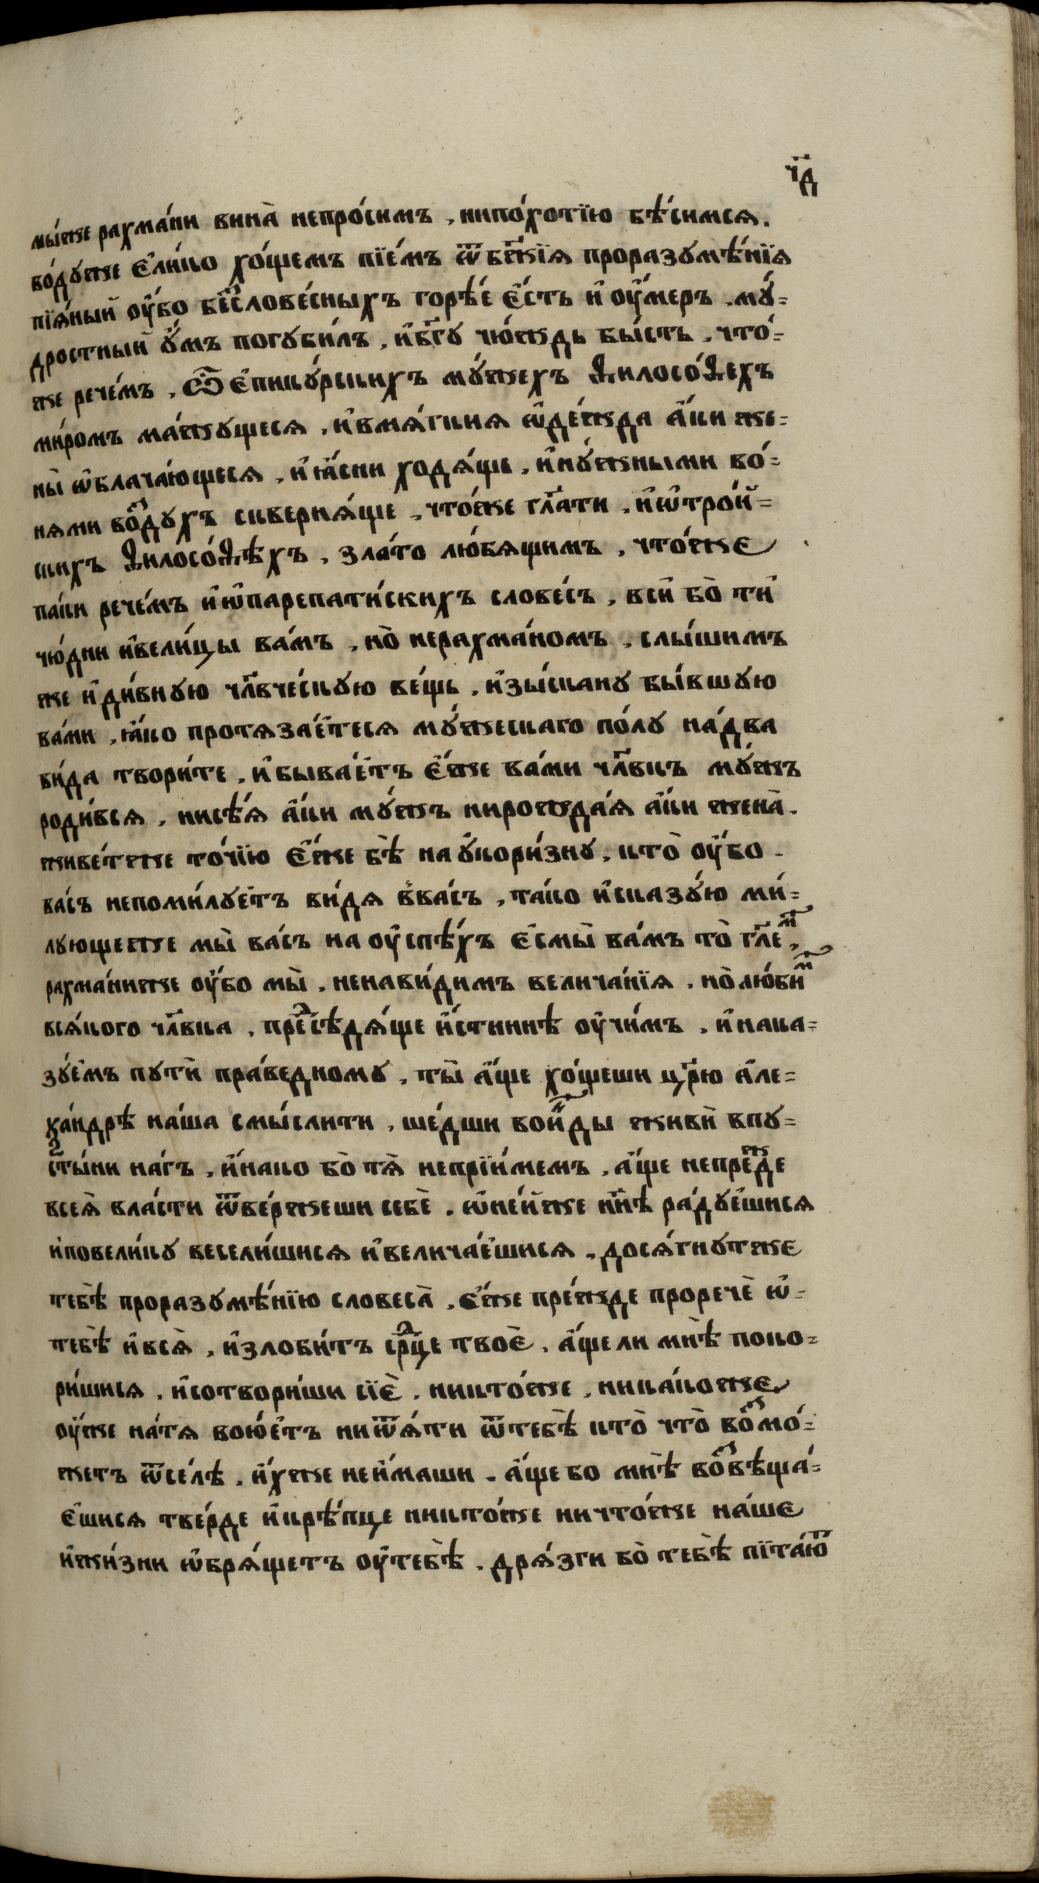 ч҃д
мы́же рахма́ни вина̀ непро́симъ , нипо́хотїю бѣ́симсѧ .
во́дꙋже є҆ли́ко хо́щемъ пїе́мъ ѿ бж҃їѧ проразꙋмѣ́нїѧ
пїѧ́ный оу҆́бо бесⷭ҇лове́сныхъ горѣ́е є҆́сть и҆ оу҆́меръ . мꙋ́-
дростный ꙋ҆́мъ погꙋби́лъ , и҆бг҃ꙋ чю́ждь бы́сть . что́-
же рече́мъ , Ѿ є҆пикꙋ́рскихъ мꙋ́жехъ ѳилосо́ѳехъ
ми́ромъ ма́жꙋщесѧ , и҆вмѧ́гкиѧ ѡ҆де́жда а҆́ки же-
ны̀ ѡ҆блача́ющесѧ , и҆ ꙗ҆́сни ходѧ́ще , и҆нꙋ́жными во́-
нѧми воз̾дꙋхъ сквернѧ́ще , что́же гл҃ати , и҆ѡ҆тро́й-
скихъ ѳилосо́ѳѣхъ , зла́то лю́бѧщимъ , что́же
па́ки рече́мъ и҆ѡ҆парепати́скихъ слове́съ , всѝ бо̀ тѝ
чю́дни и҆вели́цы ва́мъ , но̀ нерахма́номъ , слы́шимъ
же и҆ди́внꙋю чл҃вче́скꙋю ве́щь , и҆зы́сканꙋ бы́вшꙋю
ва́ми , ꙗ҆́ко протѧза́етесѧ мꙋ́жескаго по́лꙋ на́два
ви́да твори́те , и҆быва́етъ є҆́же ва́ми чл҃вкъ мꙋ́жъ
роди́всѧ , нисѣ́ѧ а҆́ки мꙋ́жъ нирожда́ѧ а҆́ки жена̀ .
живе́теже то́чїю є҆́же бѣ̀ на ꙋ҆кори́знꙋ , кто̀ оу҆́бо
ва́съ непоми́лꙋетъ ви́дѧ в̾ва́съ , та́ко и҆сказꙋ́ю ми́-
лꙋющеже мы̀ ва́съ на оу҆спѣ́хъ є҆смы̀ ва́мъ то̀ гл҃емⷨ ,
рахма́ниже оу҆́бо мы̀ , ненави́димъ велича́нїѧ , но̀ лю́бимⷨ
всѧ́кого чл҃вка , предⷣсѣдѧ́ще и҆́стиннѣ оу҆чи́мъ , и҆нака-
зꙋ́емъ пꙋтѝ пра́ведномꙋ , ты̀ а҆́ще хо́щеши цр҃ю а҆ле-
ѯа́ндрѣ на́ша смы́слити , ше́дши войди живѝ впꙋ-
сты́ни на́гъ , и҆́нако бо̀ тѧ̀ непрїи́мемъ , а҆́ще непре́жⷤде
всеѧ̀ вла́сти ѿве́ржеши себѐ , ѡ҆не́йже нн҃ѣ ра́дꙋешисѧ
и҆повели́кꙋ весели́шисѧ и҆велича́ешисѧ , досѧ́гнꙋтже
тебѣ̀ проразꙋмѣ́нїю словеса̀ , є҆́же пре́жде проречѐ ѡ҆-
тебѣ̀ и҆всѧ̀ , и҆злоби́тъ ср҃це твоѐ , а҆́ще ли мнѣ̀ поко-
ри́шисѧ , и҆сотвори́ши сїѐ , никто́же , ника́коже
оу҆́же на́тѧ вою́етъ ниѿѧ́ти ѿтебѣ̀ кто̀ что̀ воз̾мо́-
жетъ ѿсе́лѣ , и҆́хже неи҆́маши . а҆́ще бо мнѣ̀ воз̾вѣща́-
є҆шисѧ тве́рде и҆крѣ́пце никто́же ничто́же на́ше
и҆жи́зни ѡ҆брѧ́щетъ оу҆тебѣ̀ . дрѧ́зги бо̀ тебѣ̀ пїта́юⷮ